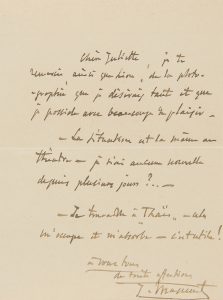 Chère Juliette, je te
remercie, ainsi que Léon, de la photo-
graphie que je désirais tant et que
je possède avec beaucoup de plaisir –
– La situation est la même au
théâtre – je n'ai aucune nouvelle
depuis plusieurs jours ?.. –
– Je travaille à Thaïs, – cela
m'occupe et m'absorbe – c'est utile !
à vous tous
de toute affection
J. Massenet